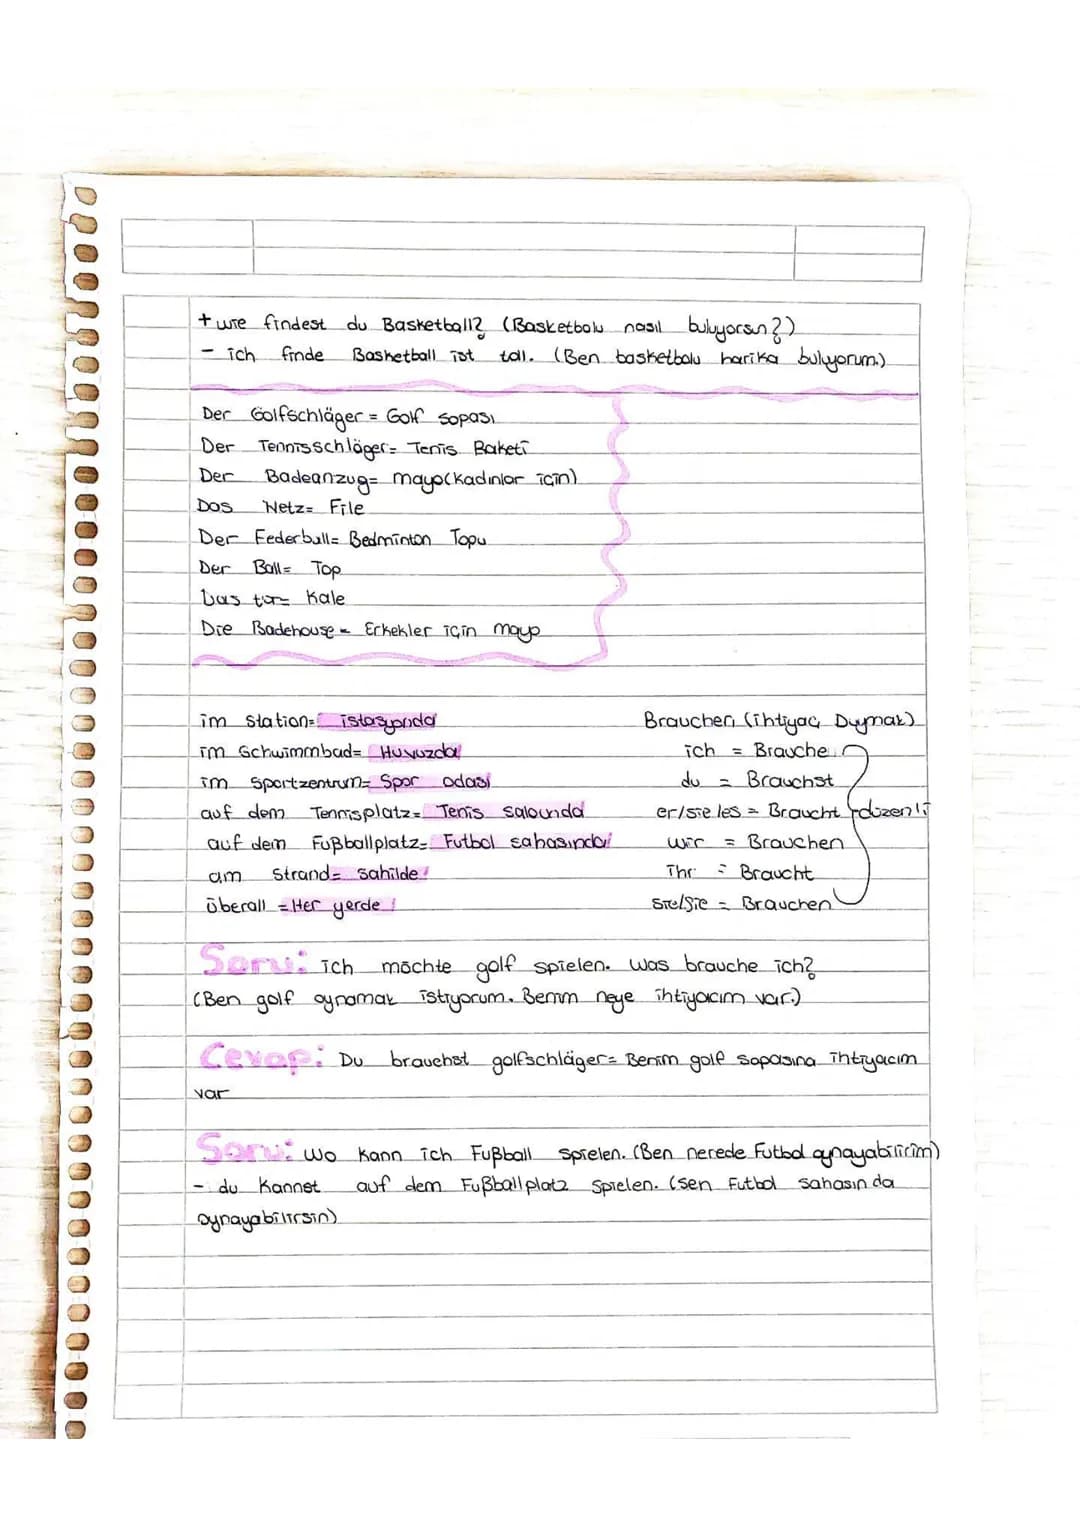 + wie findest du Basketball? (Basketbolu nasıl buluyorsun?)
- ich finde Basketball ist toll. (Ben basketbolu harika buluyorum.)
Der Golfschläger = Golf sopası
Der Tennisschläger= Tenis Baketi
Der Badeanzug= mayo(kadınlar için)
Das Netz= File
Der Federball= Bedminton Topu
Der Ball= Top
Das tor= Kale
Die Badehouse = Erkekler için mayo
im station= istasyonda
im Schwimmbad= Huvuzda
im sportzentrum= Spor odası
auf dem Tennisplatz= Tenis salounda
auf dem Fußballplatz= Futbol sahasında
am Strand= Sahilde
überall = Her yerde
Brauchen (ihtiyaç Duymak)
ich = Brauche
du = Brauchst
er/sie/es = Braucht düzenli
wir = Brauchen
Ihr = Braucht
sie/Sie = Brauchen
Soru: ich möchte golf spielen. was brauche ich?
(Ben golf oynamak istiyorum. Benim neye ihtiyacım var.)
Cevap: Du brauchst golfschläger= Benim golf sopasına ihtiyacım
var
Soru: wo kann ich Fußball spielen. (Ben nerede Futbol oynayabilirim)
- du kannst auf dem Fußballplatz spielen. (sen Futbol sahasın da
oynayabilirsin)